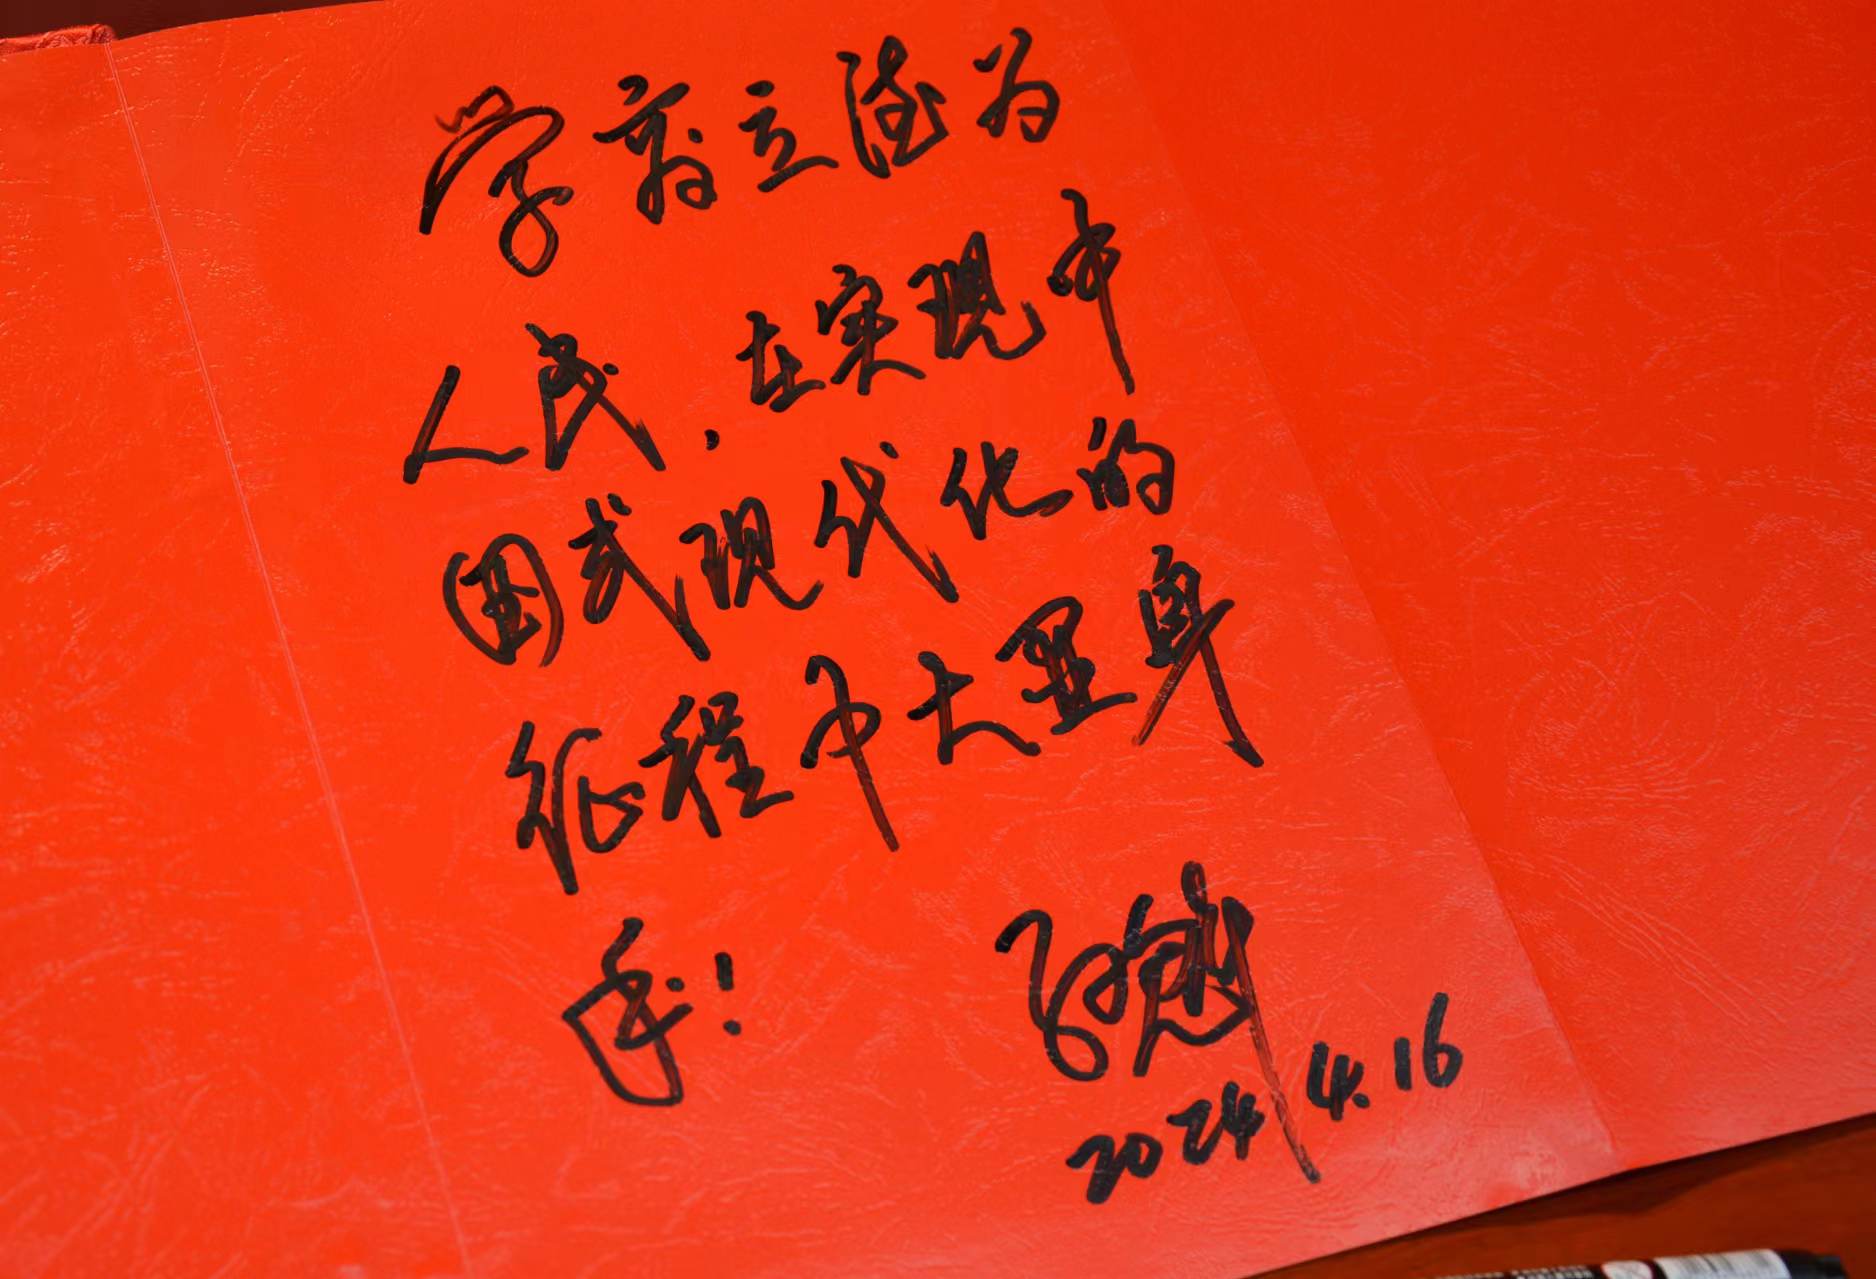 学府立德为
人民，在实现中
国式现代化的
征程中大显身
手！
2024.4.16